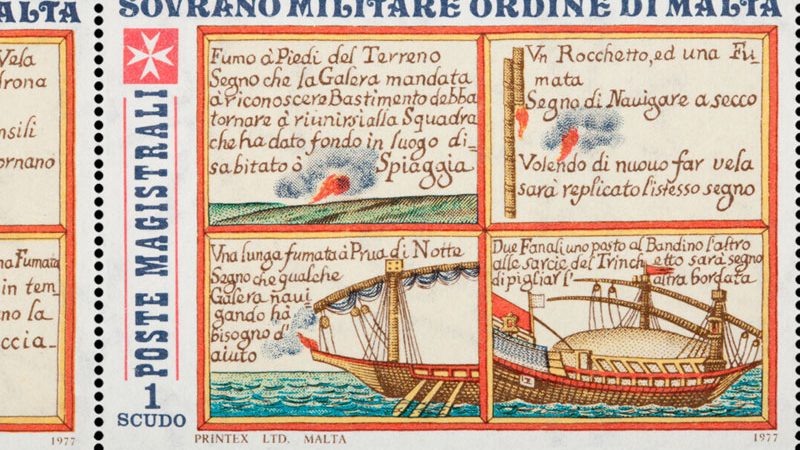 ALTA
SOVRANO MILITARE ORDINE DI MALTA
Vela
drona
nsili
ornano
na Fumata
in tem_
no la
ccia_
1977
POSTE MAGISTRALI
1
SCUDO
Fumo à Piedi del Terreno
Segno che la Galera mandata
à riconoscere Bastimento debba
tornare à riunirsi alla Squadra
che ha dato fondo in luogo di_
sabitato ò Spiaggia
Vn Rocchetto, ed una Fu_
mata
Segno di Nauigare a secco
Volendo di nuouo far vela
sarà replicato l'istesso segno
Vna lunga fumata à Prua di Notte
Segno che qualche
Galera naui_
gando hà
bisogno d'
aiuto
Due Fanali uno posto al Bandino l'altro
alle sarcie del Trinchetto sarà segno
di pigliar l'altra bordata
PRINTEX LTD. MALTA
1977